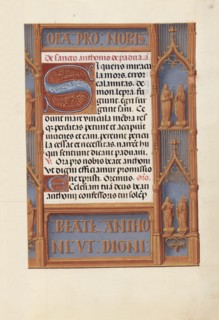 ORA PRO NOBIS
De sancto anthonio de padua. a.
Si queris miracula
mors error
calamitas. de
mon lepra fu
giunt. egri sur
gunt sani. Ce
dunt mare vincula membra res
q3 perditas petunt et accipiunt
iuvenes et cani. pereunt pericu
la cessat et necessitas. narrent hii
qui sentiunt dicant paduani.
V. Ora pro nobis beate anthoni
Ut digni efficiamur promissio
ne xpristi. Oremus. oro.
Ecclesiam tua deus bean
anthonij confessoris tui solep
BEATE ANTHO
NI VT DIGNI